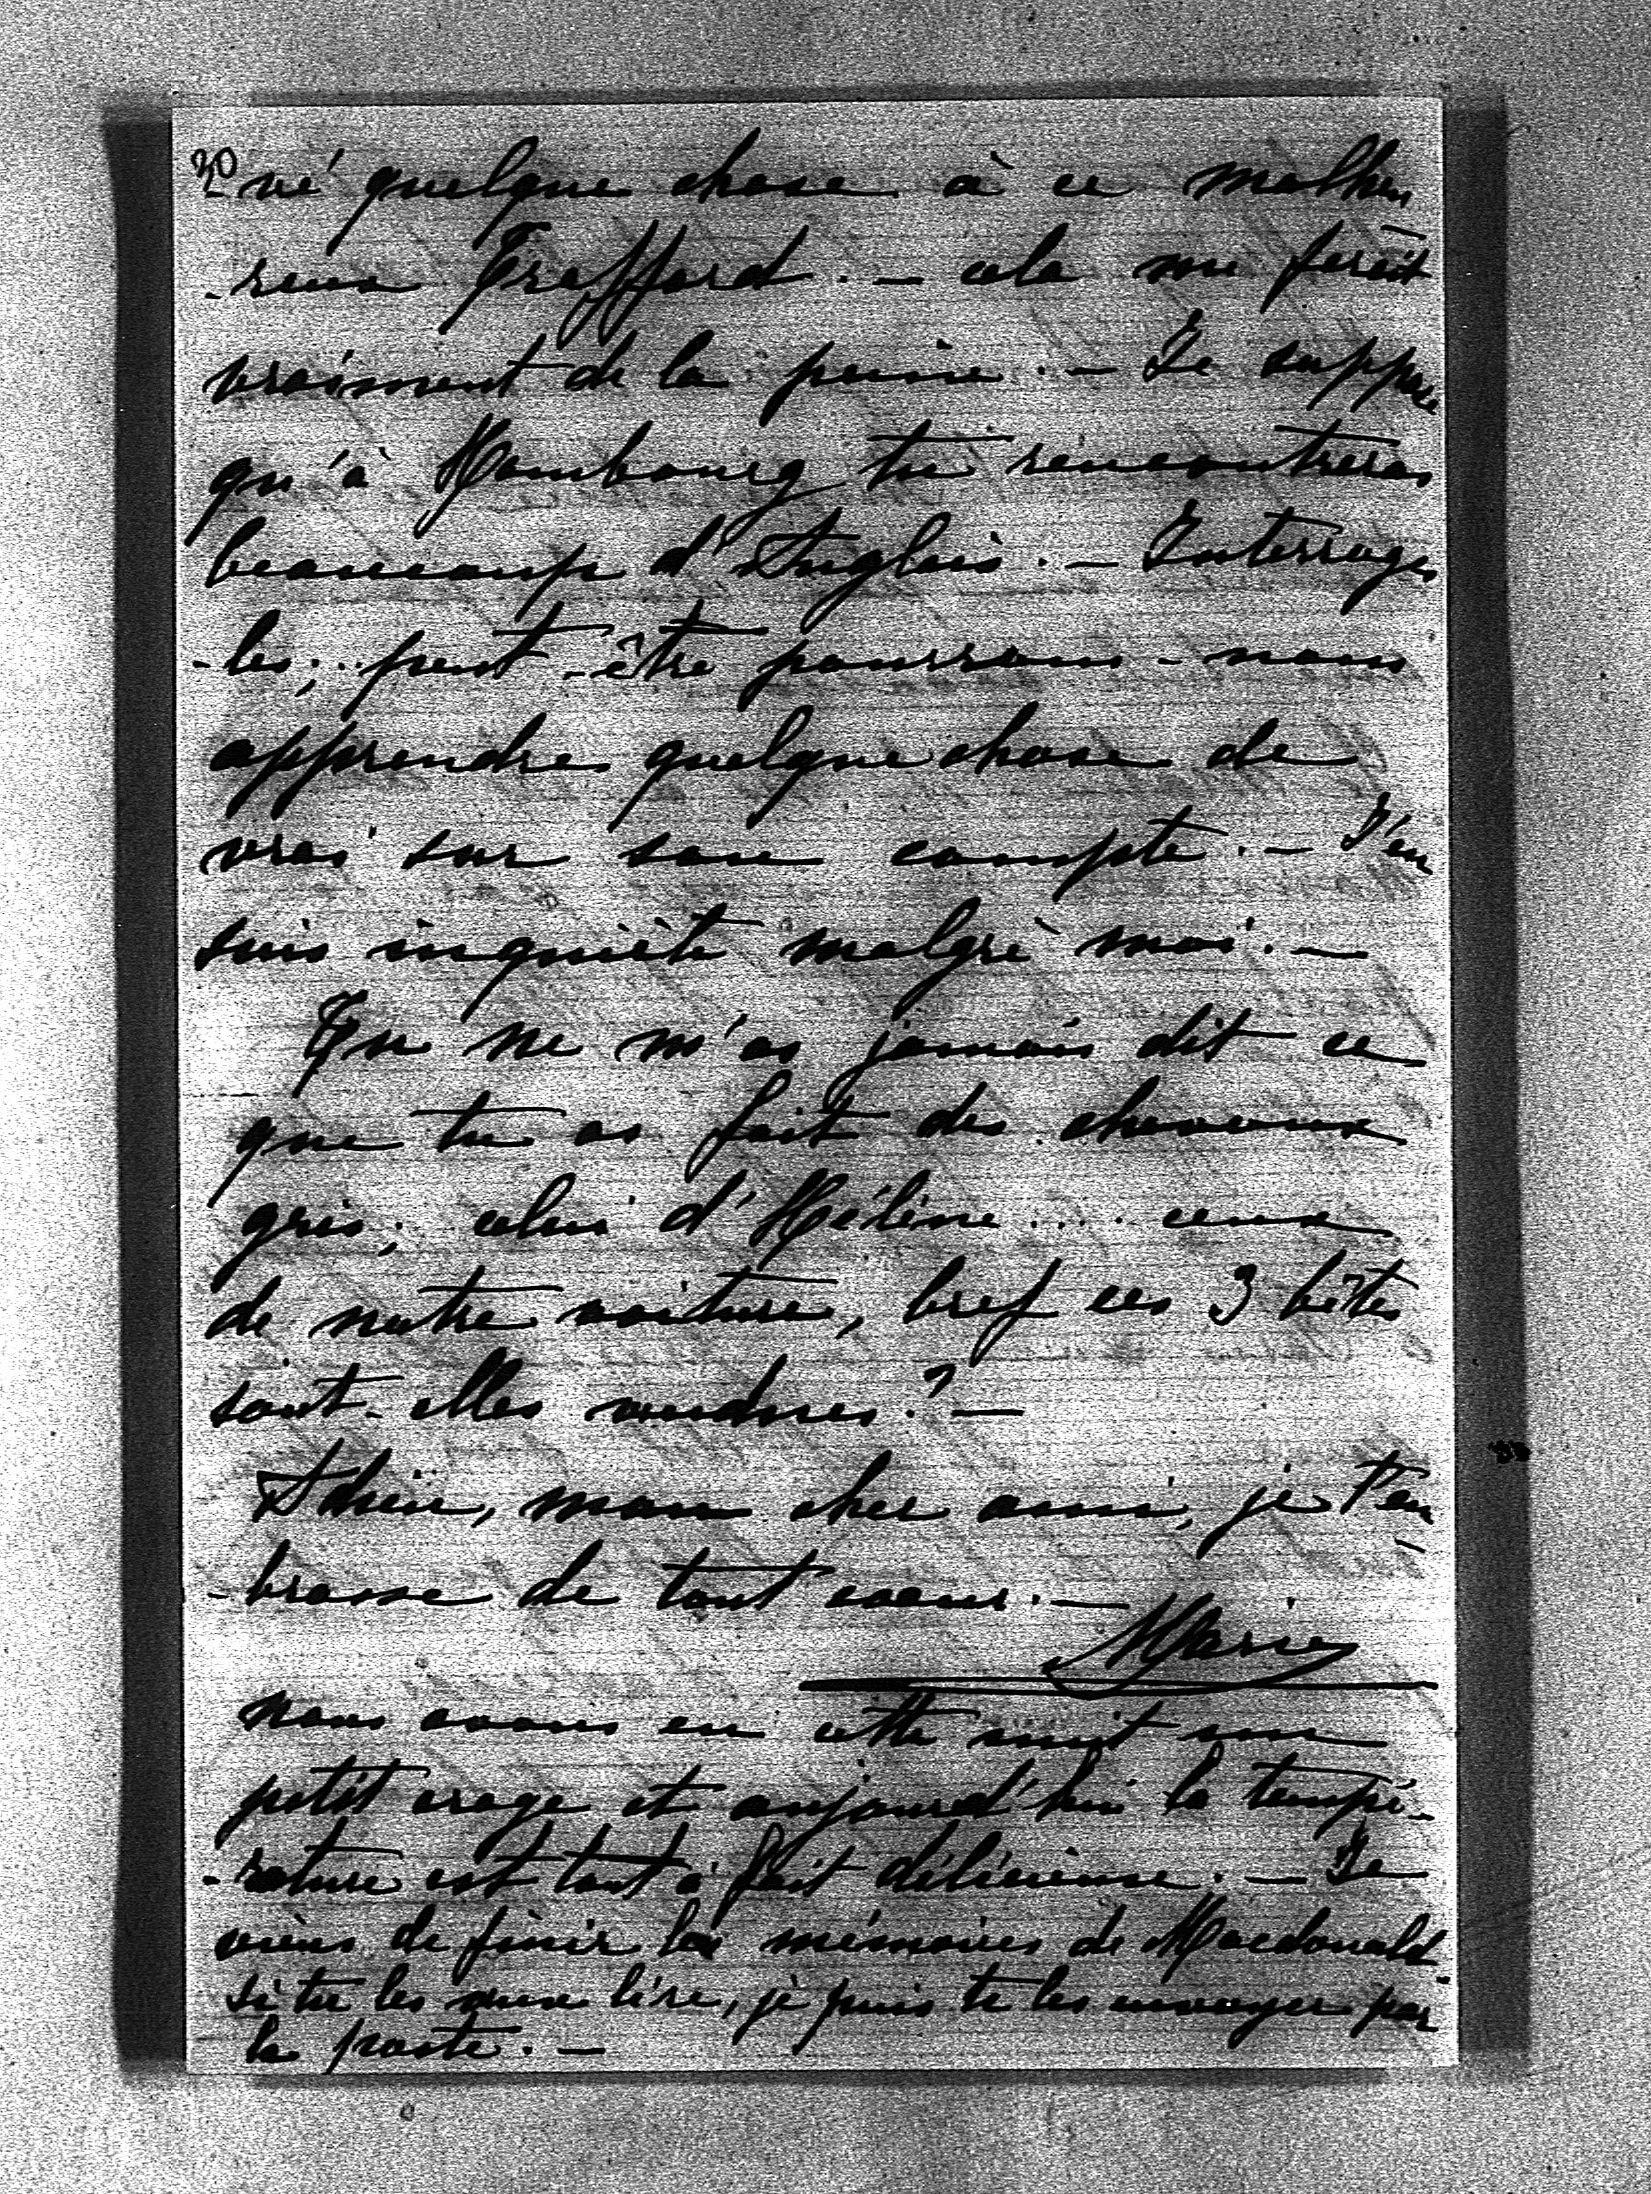 30 vé quelque chose à ce malheu
-reux Trafford. — cela me ferait
vraiment de la peine. — Je suppose
qu'à Hombourg tu rencontreras
beaucoup d'Anglais. — Interroges
-les; peut-être pourrons-nous
apprendre quelque chose de
vrai sur son compte. — J'en
suis inquiète malgré moi. —
Tu ne m'as jamais dit ce
que tu as fait des chevaux
gris; celui d'Hélène .... ceux
de notre voiture, bref ces 3 bêtes
sont-elles vendues? —
Adieu, mon cher ami, je t'em
-brasse de tout coeur. —
Marie
nous avons eu cette nuit un
petit orage et aujourd'hui la tempé-
-rature est tout à fait délicieuse. — Je
viens de finir les mémoires de Macdonald
si tu les veux lire, je puis te les envoyer par
la poste. —